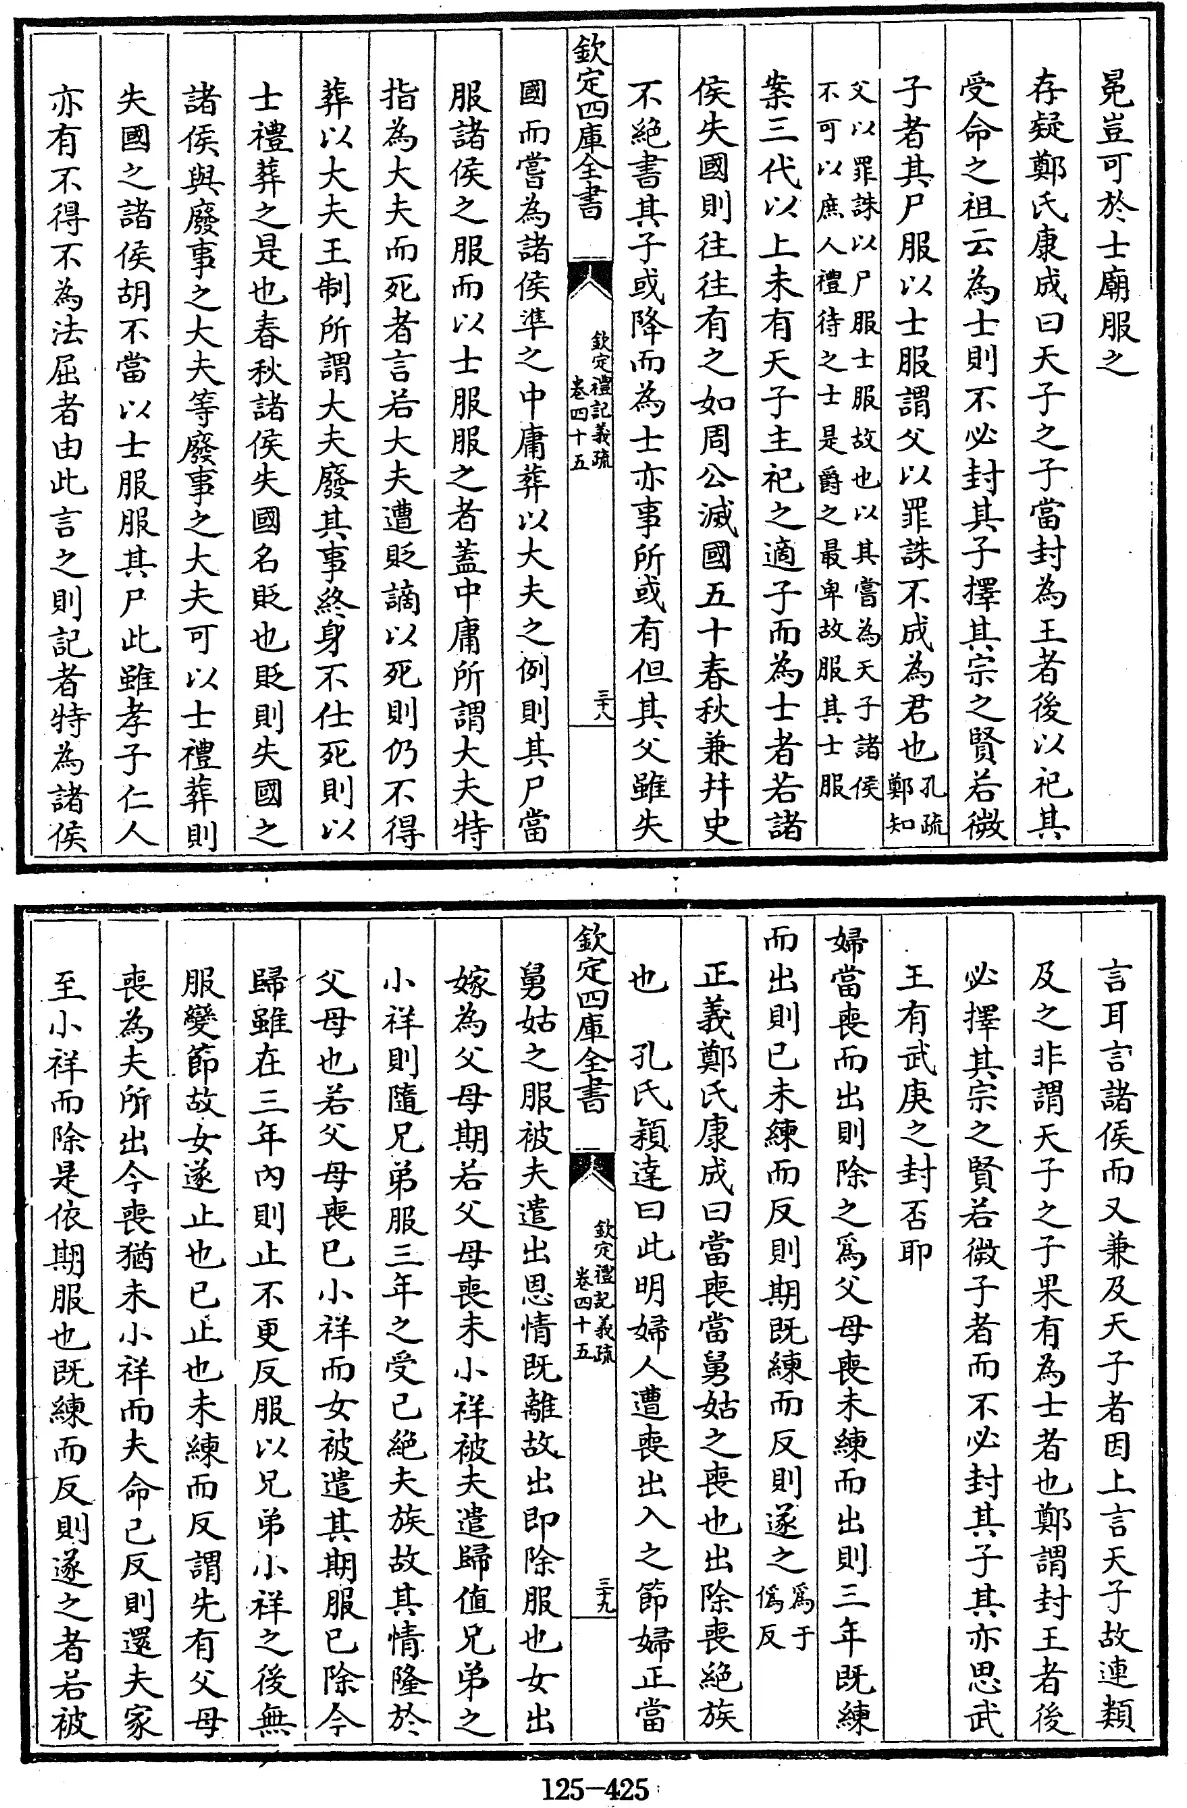 冕豈可於士廟服之
存疑鄭氏康成曰天子之子當封為王者後以祀其
受命之祖云為士則不必封其子擇其宗之賢若微
子者其尸服以士服謂父以罪誅不成為君也孔疏鄭知
父以罪誅以尸服士服故也以其嘗為天子諸侯
不可以庶人禮待之士是爵之最卑故服其士服
案三代以上未有天子主祀之適子而為士者若諸
侯失國則往往有之如周公滅國五十春秋兼并史
不絶書其子或降而為士亦事所或有但其父雖失
欽定四庫全書
欽定禮記義疏
卷四十五
三十八
國而嘗為諸侯準之中庸葬以大夫之例則其尸當
服諸侯之服而以士服服之者蓋中庸所謂大夫特
指為大夫而死者言若大夫遭貶謫以死則仍不得
葬以大夫王制所謂大夫廢其事終身不仕死則以
士禮葬之是也春秋諸侯失國名貶也貶則失國之
諸侯與廢事之大夫等廢事之大夫可以士禮葬則
失國之諸侯胡不當以士服服其尸此雖孝子仁人
亦有不得不為法屈者由此言之則記者特為諸侯
言耳言諸侯而又兼及天子者因上言天子故連類
及之非謂天子之子果有為士者也鄭謂封王者後
必擇其宗之賢若微子者而不必封其子其亦思武
王有武庚之封否耶
婦當喪而出則除之為父母喪未練而出則三年既練
而出則已未練而反則期既練而反則遂之為于偽反
正義鄭氏康成曰當喪當舅姑之喪也出除喪絶族
也　孔氏穎達曰此明婦人遭喪出入之節婦正當
欽定四庫全書
欽定禮記義疏
卷四十五
三十九
舅姑之服被夫遣出恩情既離故出即除服也女出
嫁為父母期若父母喪未小祥被夫遣歸值兄弟之
小祥則隨兄弟服三年之受已絶夫族故其情隆於
父母也若父母喪已小祥而女被遣其期服已除今
歸雖在三年內則止不更反服以兄弟小祥之後無
服變節故女遂止也已止也未練而反謂先有父母
喪為夫所出今喪猶未小祥而夫命已反則還夫家
至小祥而除是依期服也既練而反則遂之者若被
125-425